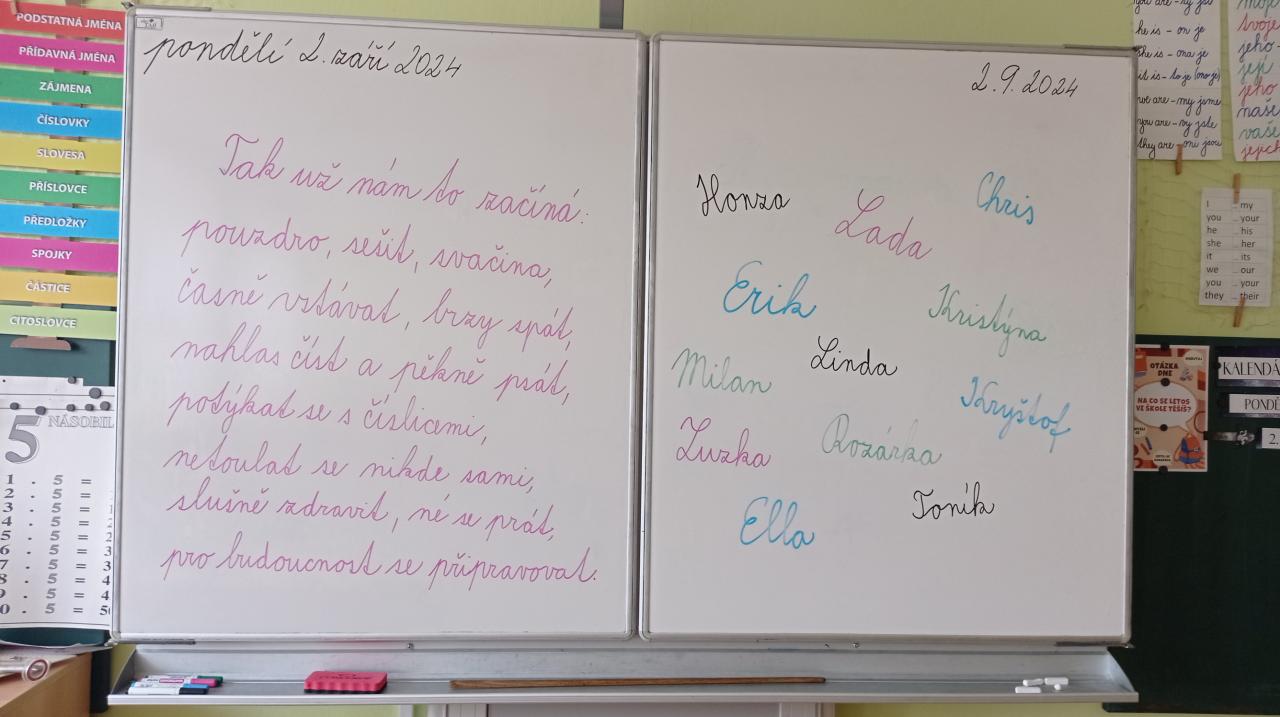 PODSTATNÁ JMÉNA
PŘÍDAVNÁ JMÉNA
ZÁJMENA
ČÍSLOVKY
SLOVESA
PŘÍSLOVCE
PŘEDLOŽKY
SPOJKY
ČÁSTICE
CITOSLOVCE
5 NÁSOBIL
1 . 5 =
2 . 5 =
3 . 5 =
4 . 5 =
5 . 5 =
6 . 5 =
7 . 5 =
8 . 5 =
9 . 5 =
0 . 5 =
pondělí 2. září 2024
Tak už nám to začíná:
pouzdro, sešit, svačina,
časně vstávat, brzy spát,
nahlas číst a pěkně psát,
potýkat se s číslicemi,
netoulat se nikde sami,
slušně zdravit, né se prát,
pro budoucnost se připravovat.
2.9.2024
Honza
Lada
Chris
Erik
Kristýna
Linda
Milan
Kryštof
Luzka
Rozárka
Toník
Ella
you are - vy jste
he is - on je
she is - ona je
it is - to je (ono je)
we are - my jsme
you are - vy jste
they are - oni jsou
svoje
jeho
její
jeho
naše
vaše
jejich
I ... my
you ... your
he ... his
she ... her
it ... its
we ... our
you ... your
they ... their
OTÁZKA
DNE
NA CO SE LETOS
VE ŠKOLE TĚŠÍŠ?
KALENDÁ
PONDĚ
2.